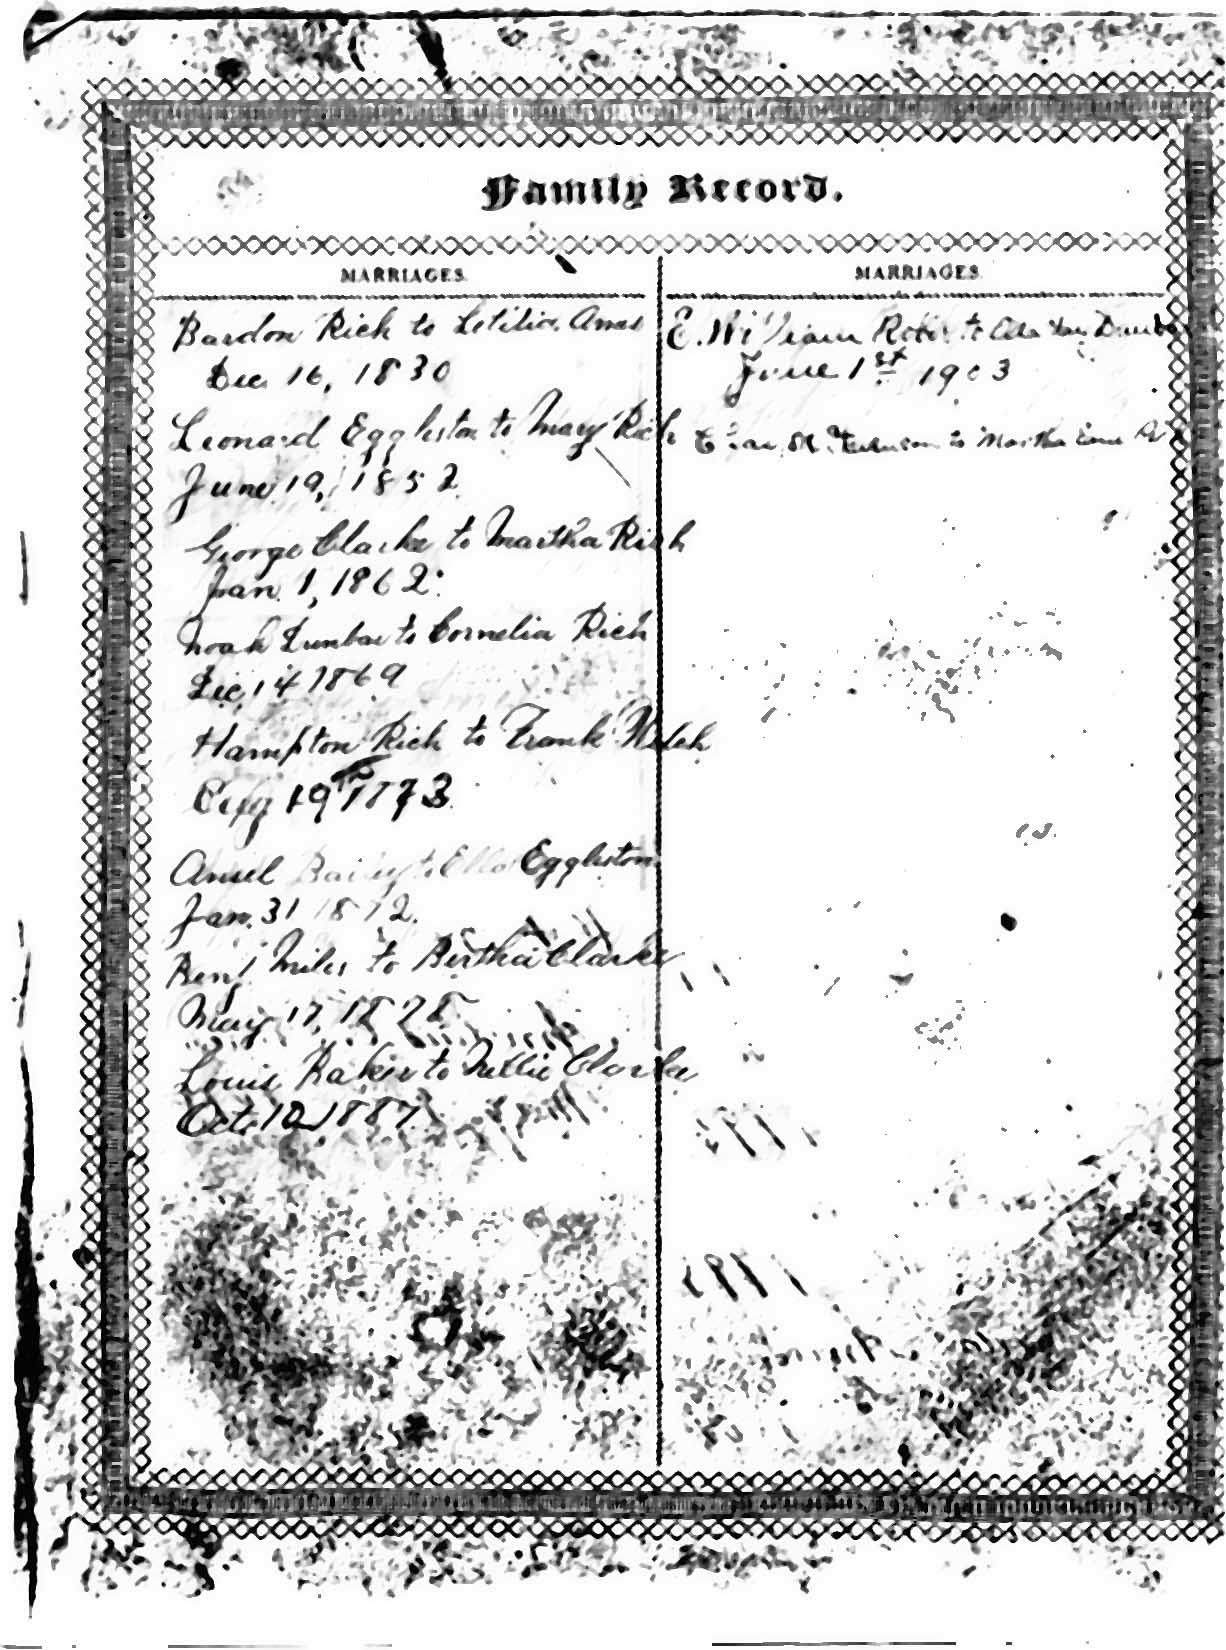 Family Record.
MARRIAGES.
Bardon Rich to Letitia Ames
Dec. 16, 1830
Leonard Eggleston to Mary Rich
June 19, 1852
George Clarke to Martha Rich
Jan. 1, 1862.
Noah Dunbar to Cornelia Rich
Dec, 14 1869
Hampton Rich to Frank Welch
19 1873
Ansel to Ella Eggleston
Jan. 31 1872.
Benj Miles to Bertha Clarke
May 17, 1878
Louis Baker to Nellie Clarke
Oct. 10, 1887
MARRIAGES.
E. William to Dunbar
June 1st 1903
to Martha